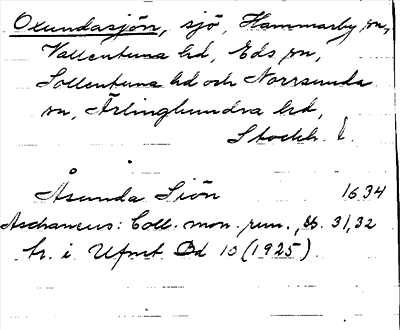 Oxundasjön, sjö, Hammarby sn,
Vallentuna hd, Eds sn,
Sollentuna hd och Norrsunda
sn, Ärlinghundra hd,
Stockh. l.
Åsunda Siön 1634
Aschaneus: Coll. mon. run., s. 31, 32
tr. i Ufmt Bd 10 (1925)